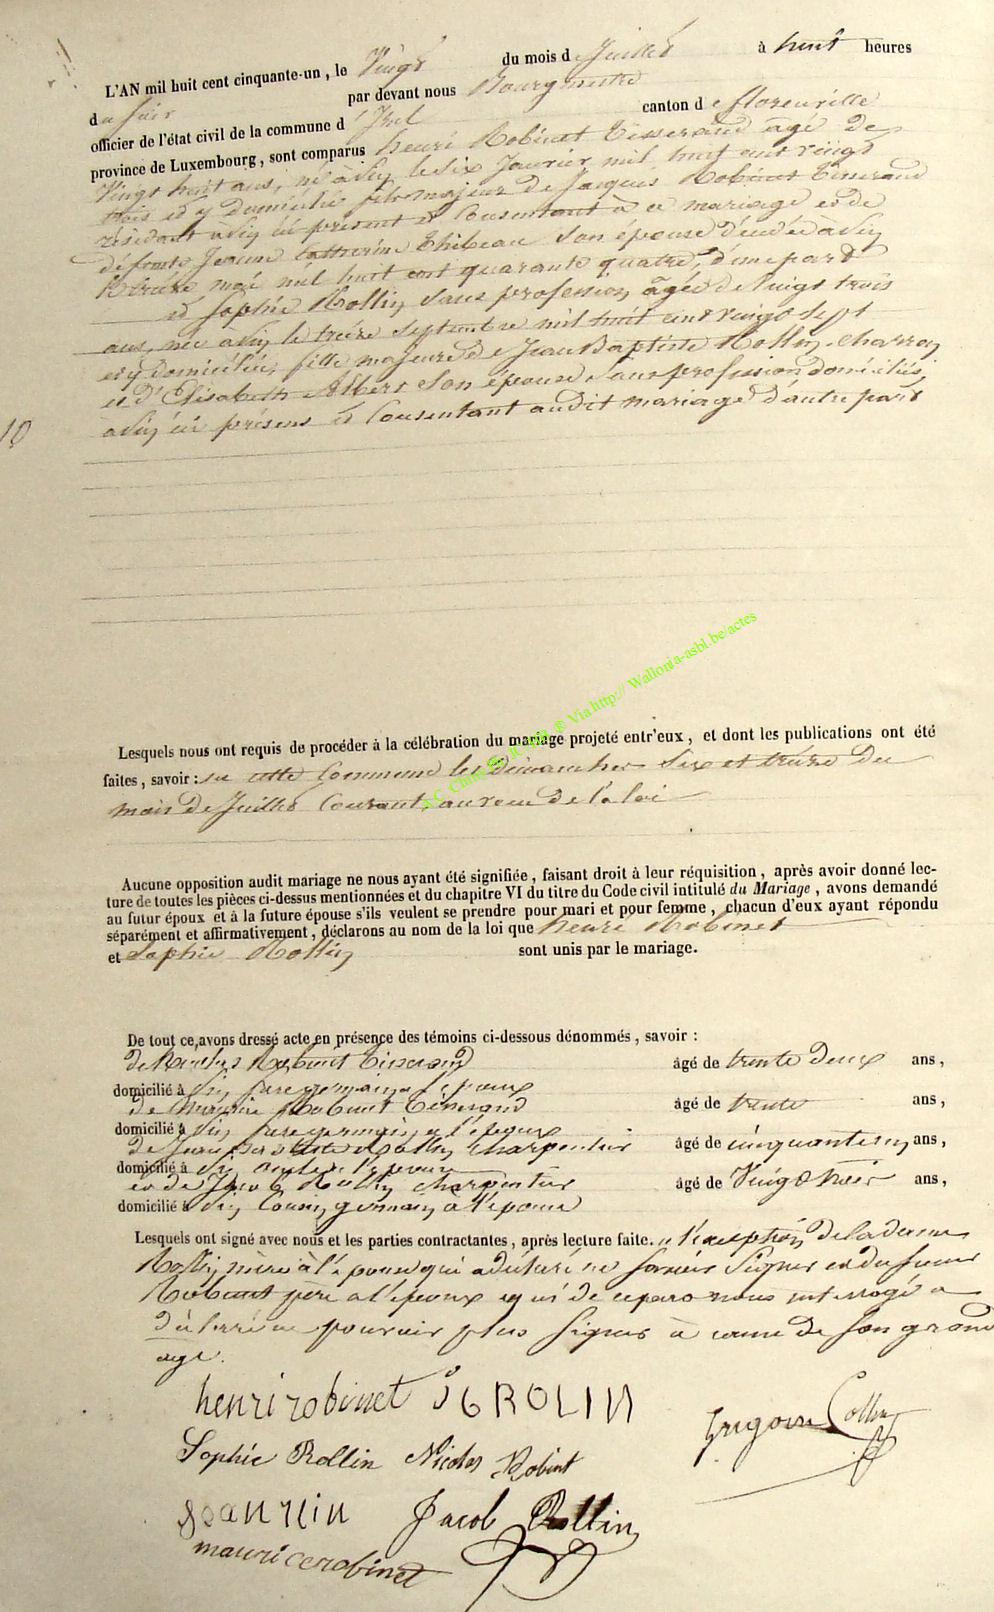 L'AN mil huit cent cinquante-un, le Vingt du mois de Juillet à huit heures
du soir par devant nous Bourgmestre
officier de l'état civil de la commune d'Izel canton de florenville
province de Luxembourg, sont comparus henri Robinet Tisserand âgé de
Vingt huit ans, né a le six Janvier mil huit cent vingt
trois et y domicilié fils majeur de Jacques Robinet tisserand
résidant a ici présent et Consentant à ce mariage et de
défunte Jeanne Catherine Thibeau son épouse décédée à
le treize mai mil huit cent quarante quatre, d'une part
et Sophie Rollin sans profession, âgée de Vingt trois
ans, née a le treize Septembre mil huit cent vingt sept
et y domiciliée, fille majeure de Jean Baptiste Rollin charron
et d'Elisabeth Albert Son épouse Sans profession domiciliés
a ici présens et Consentant audit mariage d'autre part
10
Lesquels nous ont requis de procéder à la célébration du mariage projeté entr'eux, et dont les publications ont été
faites, savoir: en cette Commune les dimanches Six et treize du
mois de Juillet Courant, au vœu de la loi
Aucune opposition audit mariage ne nous ayant été signifiée, faisant droit à leur réquisition, après avoir donné lec-
ture de toutes les pièces ci-dessus mentionnées et du chapitre VI du titre du Code civil intitulé du Mariage, avons demandé
au futur époux et à la future épouse s'ils veulent se prendre pour mari et pour femme, chacun d'eux ayant répondu
séparément et affirmativement, déclarons au nom de la loi que henri Robinet
et Sophie Rollin sont unis par le mariage.
De tout ce, avons dressé acte en présence des témoins ci-dessous dénommés, savoir:
de Nicolas Robinet Tisserand âgé de trente deux ans,
domicilié à frere germain a l'époux
de Maurice Robinet tisserand âgé de trente ans,
domicilié à frere germain a l'époux
de Jean Baptiste Rollin charpentier âgé de cinquante un ans,
domicilié à oncle a l'épouse
et de Jacob Rollin charpentier âgé de Vingt trois ans,
domicilié à Cousin germain à l'épouse
Lesquels ont signé avec nous et les parties contractantes, après lecture faite. a l'exception de la dame
Rollin mère à l'épouse qui a déclaré ne Savoir Signer et du sieur
Robinet père a l'époux qui de ce par nous interrogé a
déclaré ne pouvoir plus signer à cause de son grand
age.
henri robinet JB ROLIN
Grégoire Collin
Sophie Rollin Nicolas Robinet
Jacob Rollin
maurice robinet
Via http:// Wallonia-asbl.be/actes